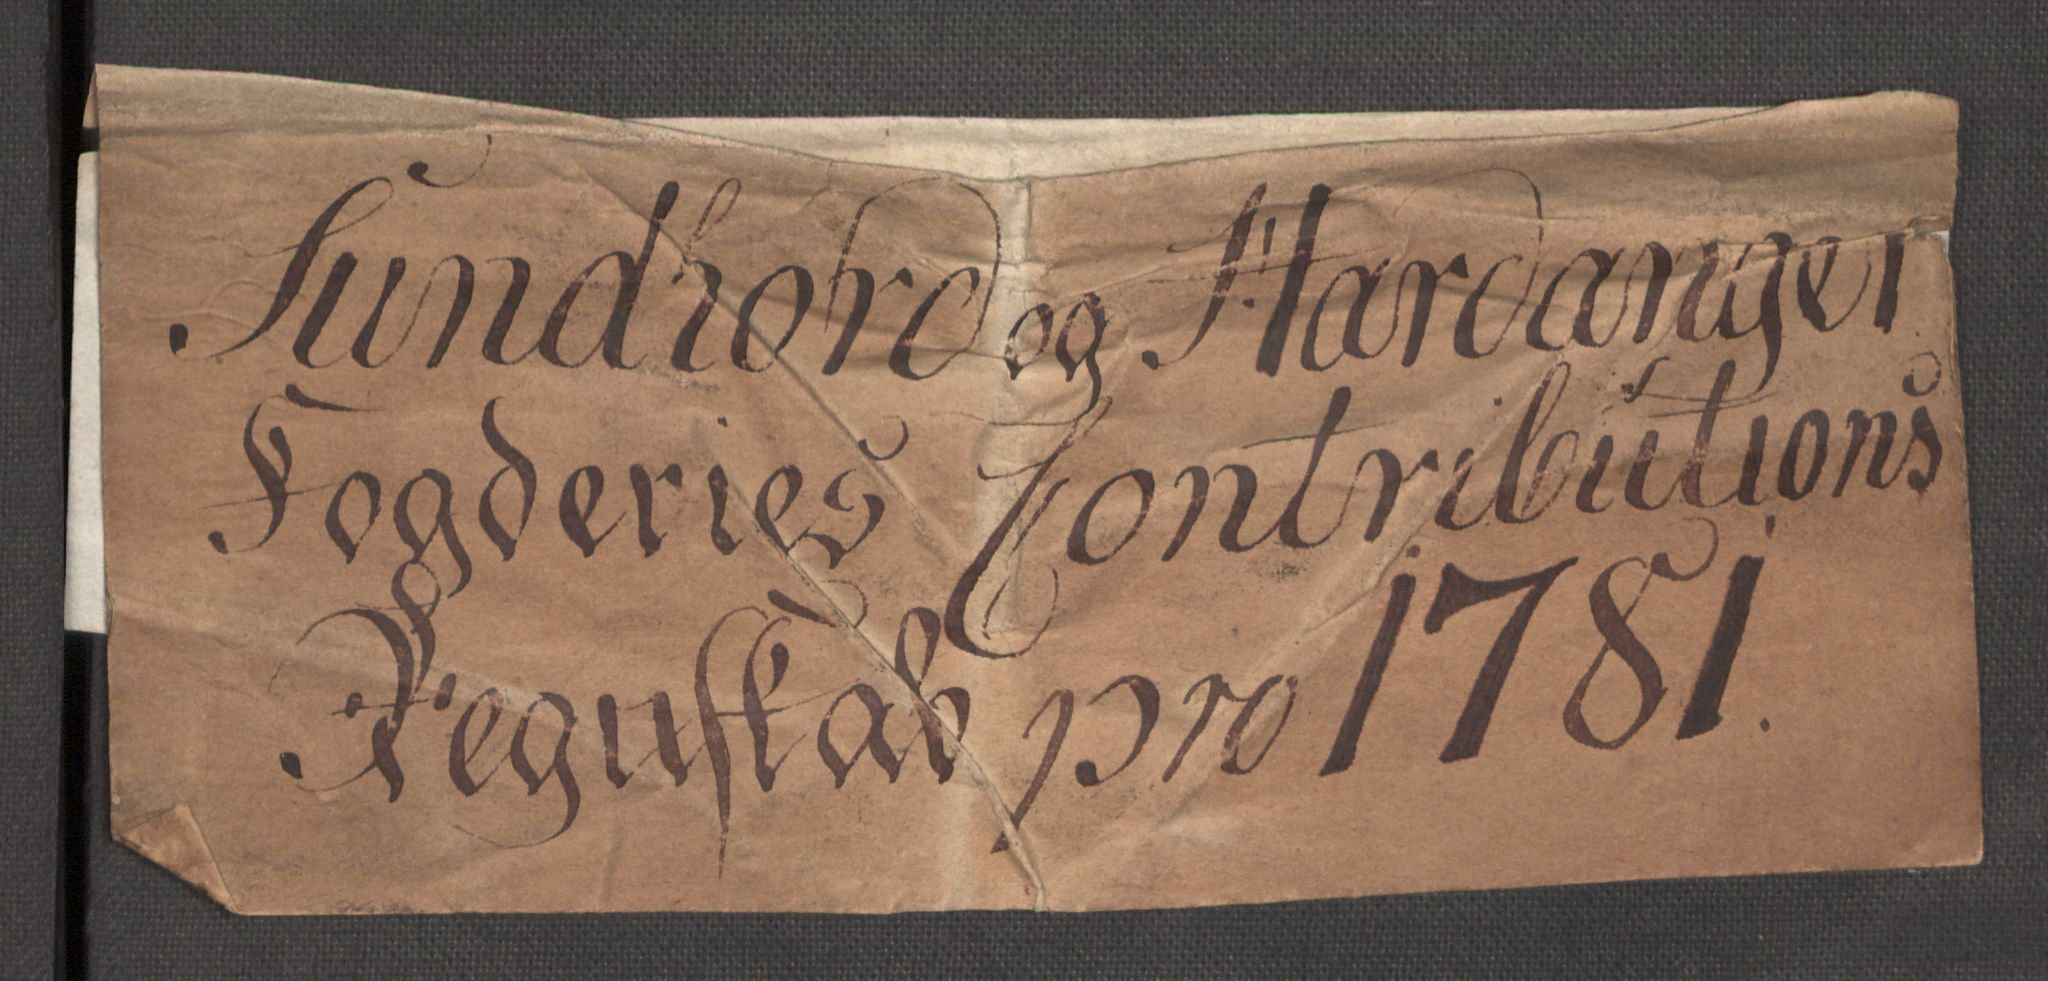 Sundhord og Hardanger
Fogderies Contributions
Reguskab pro 1781.